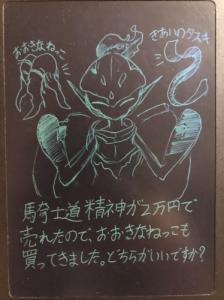 おおきなねっこ
きあいのタスキ
馬奇士道 精神が2万円で
売れたので、おおきなねっこも
買ってきました。どちらがいいですか?